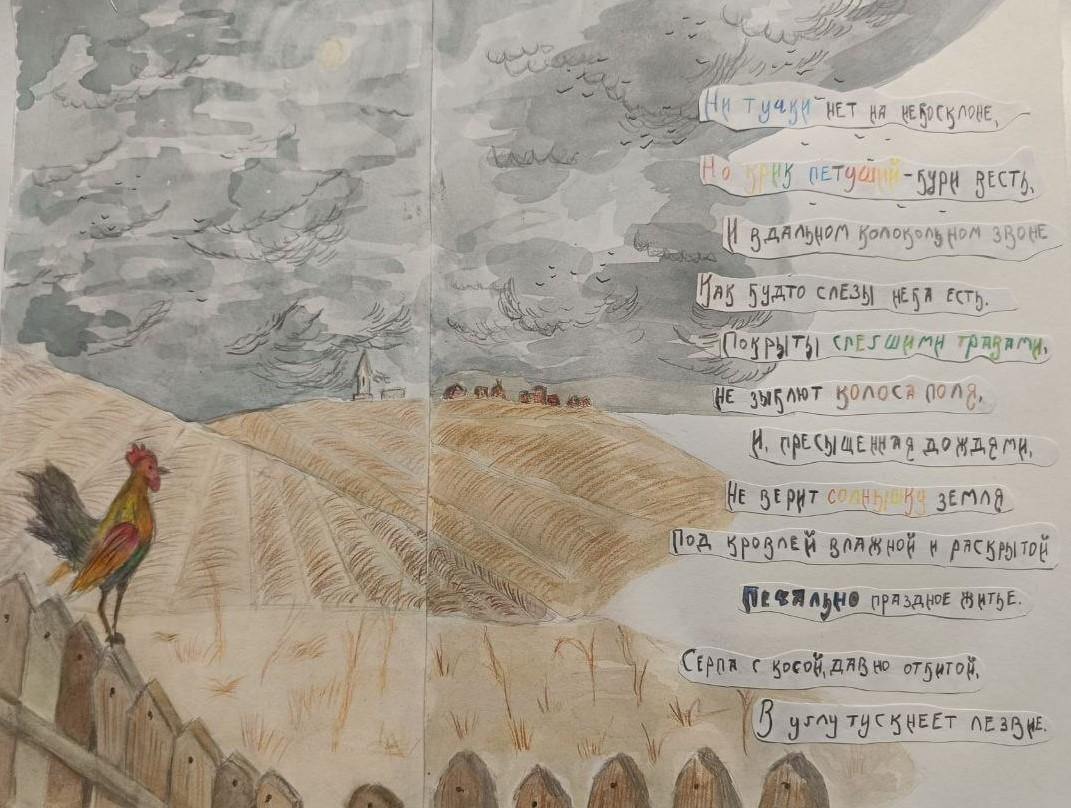 Ни тучки нет на небосклоне,
Но крик петуший - бури весть,
И в дальном колокольном звоне
Как будто слезы неба есть.
Покрыты слегшими травами,
Не зыблют колоса поля,
И, пресыщенная дождями,
Не верит солнышку земля
Под кровлей влажной и раскрытой
Печально праздное житье.
Серпа с косой, давно отбитой,
В углу тускнеет лезвие.